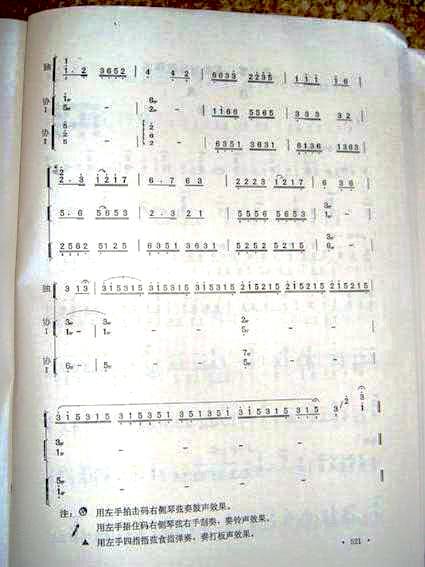 独 1 1·2 3652 | 4 4 2 | 6633 2235 | 1 1 1 1 6 |
协I 1 5 – 6 2 – | 1166 5565 | 3 3 3 3 2 |
协I 5 2 5 – 2 6 – | 6351 3631 | 6136 1363 |
2·3 1217 | 6·7 6 3 | 2223 1217 | 6 3 6 |
5·6 5653 | 2·3 2 1 | 5556 5653 | 3 1 – |
2562 5125 | 6351 3631 | 5252 5215 | 3 6 – |
独 3 1 3 | 315315 315315 315315 315315 215215 215215 215215
协I 3 1 – | 3 1 – – – 2 5 – –
协I 6 – | 5 – – – 7 5 – –
315315 315351 351351 315315 315315 315 3 2 3 1
3 1 – – – – –
5 1 – – – – –
注： 用左手拍击码右侧琴弦奏鼓声效果。
用左手捂住码右侧琴弦右手刮奏，奏铃声效果。
▲ 用左手四指捂弦食指弹奏，奏打板声效果。
· 521 ·